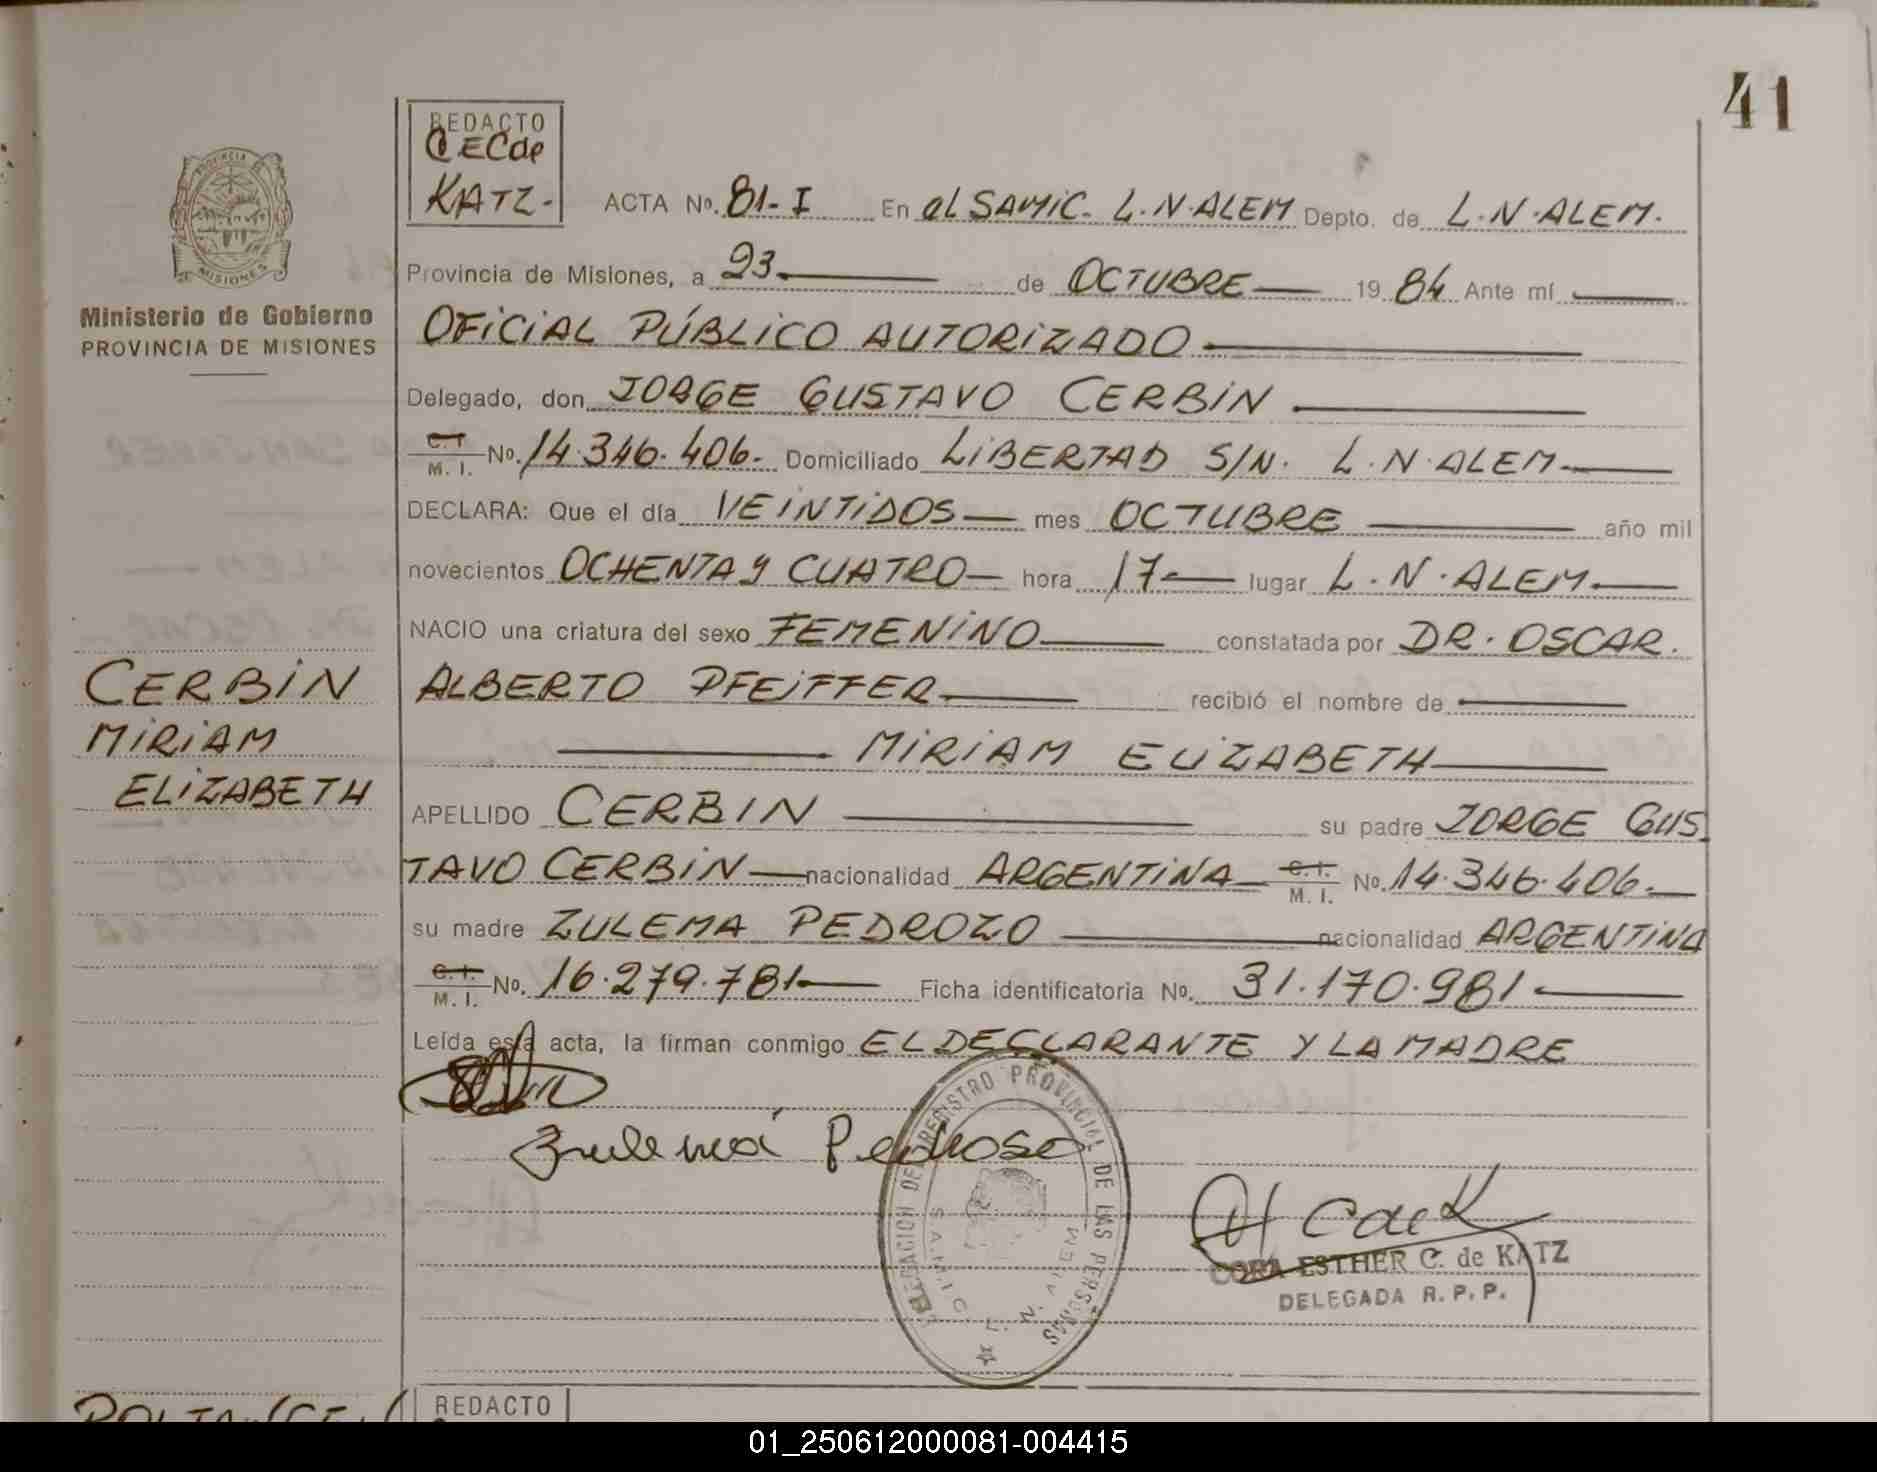 41
REDACTO
CECde
KATZ-
PROVINCIA DE
MISIONES
Ministerio de Gobierno
PROVINCIA DE MISIONES
ACTA No. 81-I En el SAMIC. L.N.ALEM Depto. de L.N.ALEM.
Provincia de Misiones, a 23 de OCTUBRE 19 84 Ante mí
OFICIAL PÚBLICO AUTORIZADO
Delegado, don JORGE GUSTAVO CERBIN
C. I. M. I. No. 14.346.406. Domiciliado LIBERTAD S/N. L.N.ALEM
DECLARA: Que el día VEINTIDOS mes OCTUBRE año mil
novecientos OCHENTA Y CUATRO hora 17 lugar L.N.ALEM
NACIO una criatura del sexo FEMENINO constatada por DR. OSCAR.
ALBERTO PFEIFFER recibió el nombre de
MIRIAM ELIZABETH
CERBIN
MIRIAM
ELIZABETH
APELLIDO CERBIN su padre JORGE GUS
TAVO CERBIN nacionalidad ARGENTINA C. I. M. I. No. 14.346.406.
su madre ZULEMA PEDROZO nacionalidad ARGENTINA
C. I. M. I. No. 16.279.781 Ficha identificatoria No. 31.170.981
Leída esta acta, la firman conmigo EL DECLARANTE Y LA MADRE
Zulema Pedroso
DELEGACION DEL REGISTRO PROVINCIAL DE LAS PERSONAS
S.A.M.I.C. L. N. ALEM
CORA ESTHER C. de KATZ
DELEGADA R. P. P.
REDACTO
01_250612000081-004415